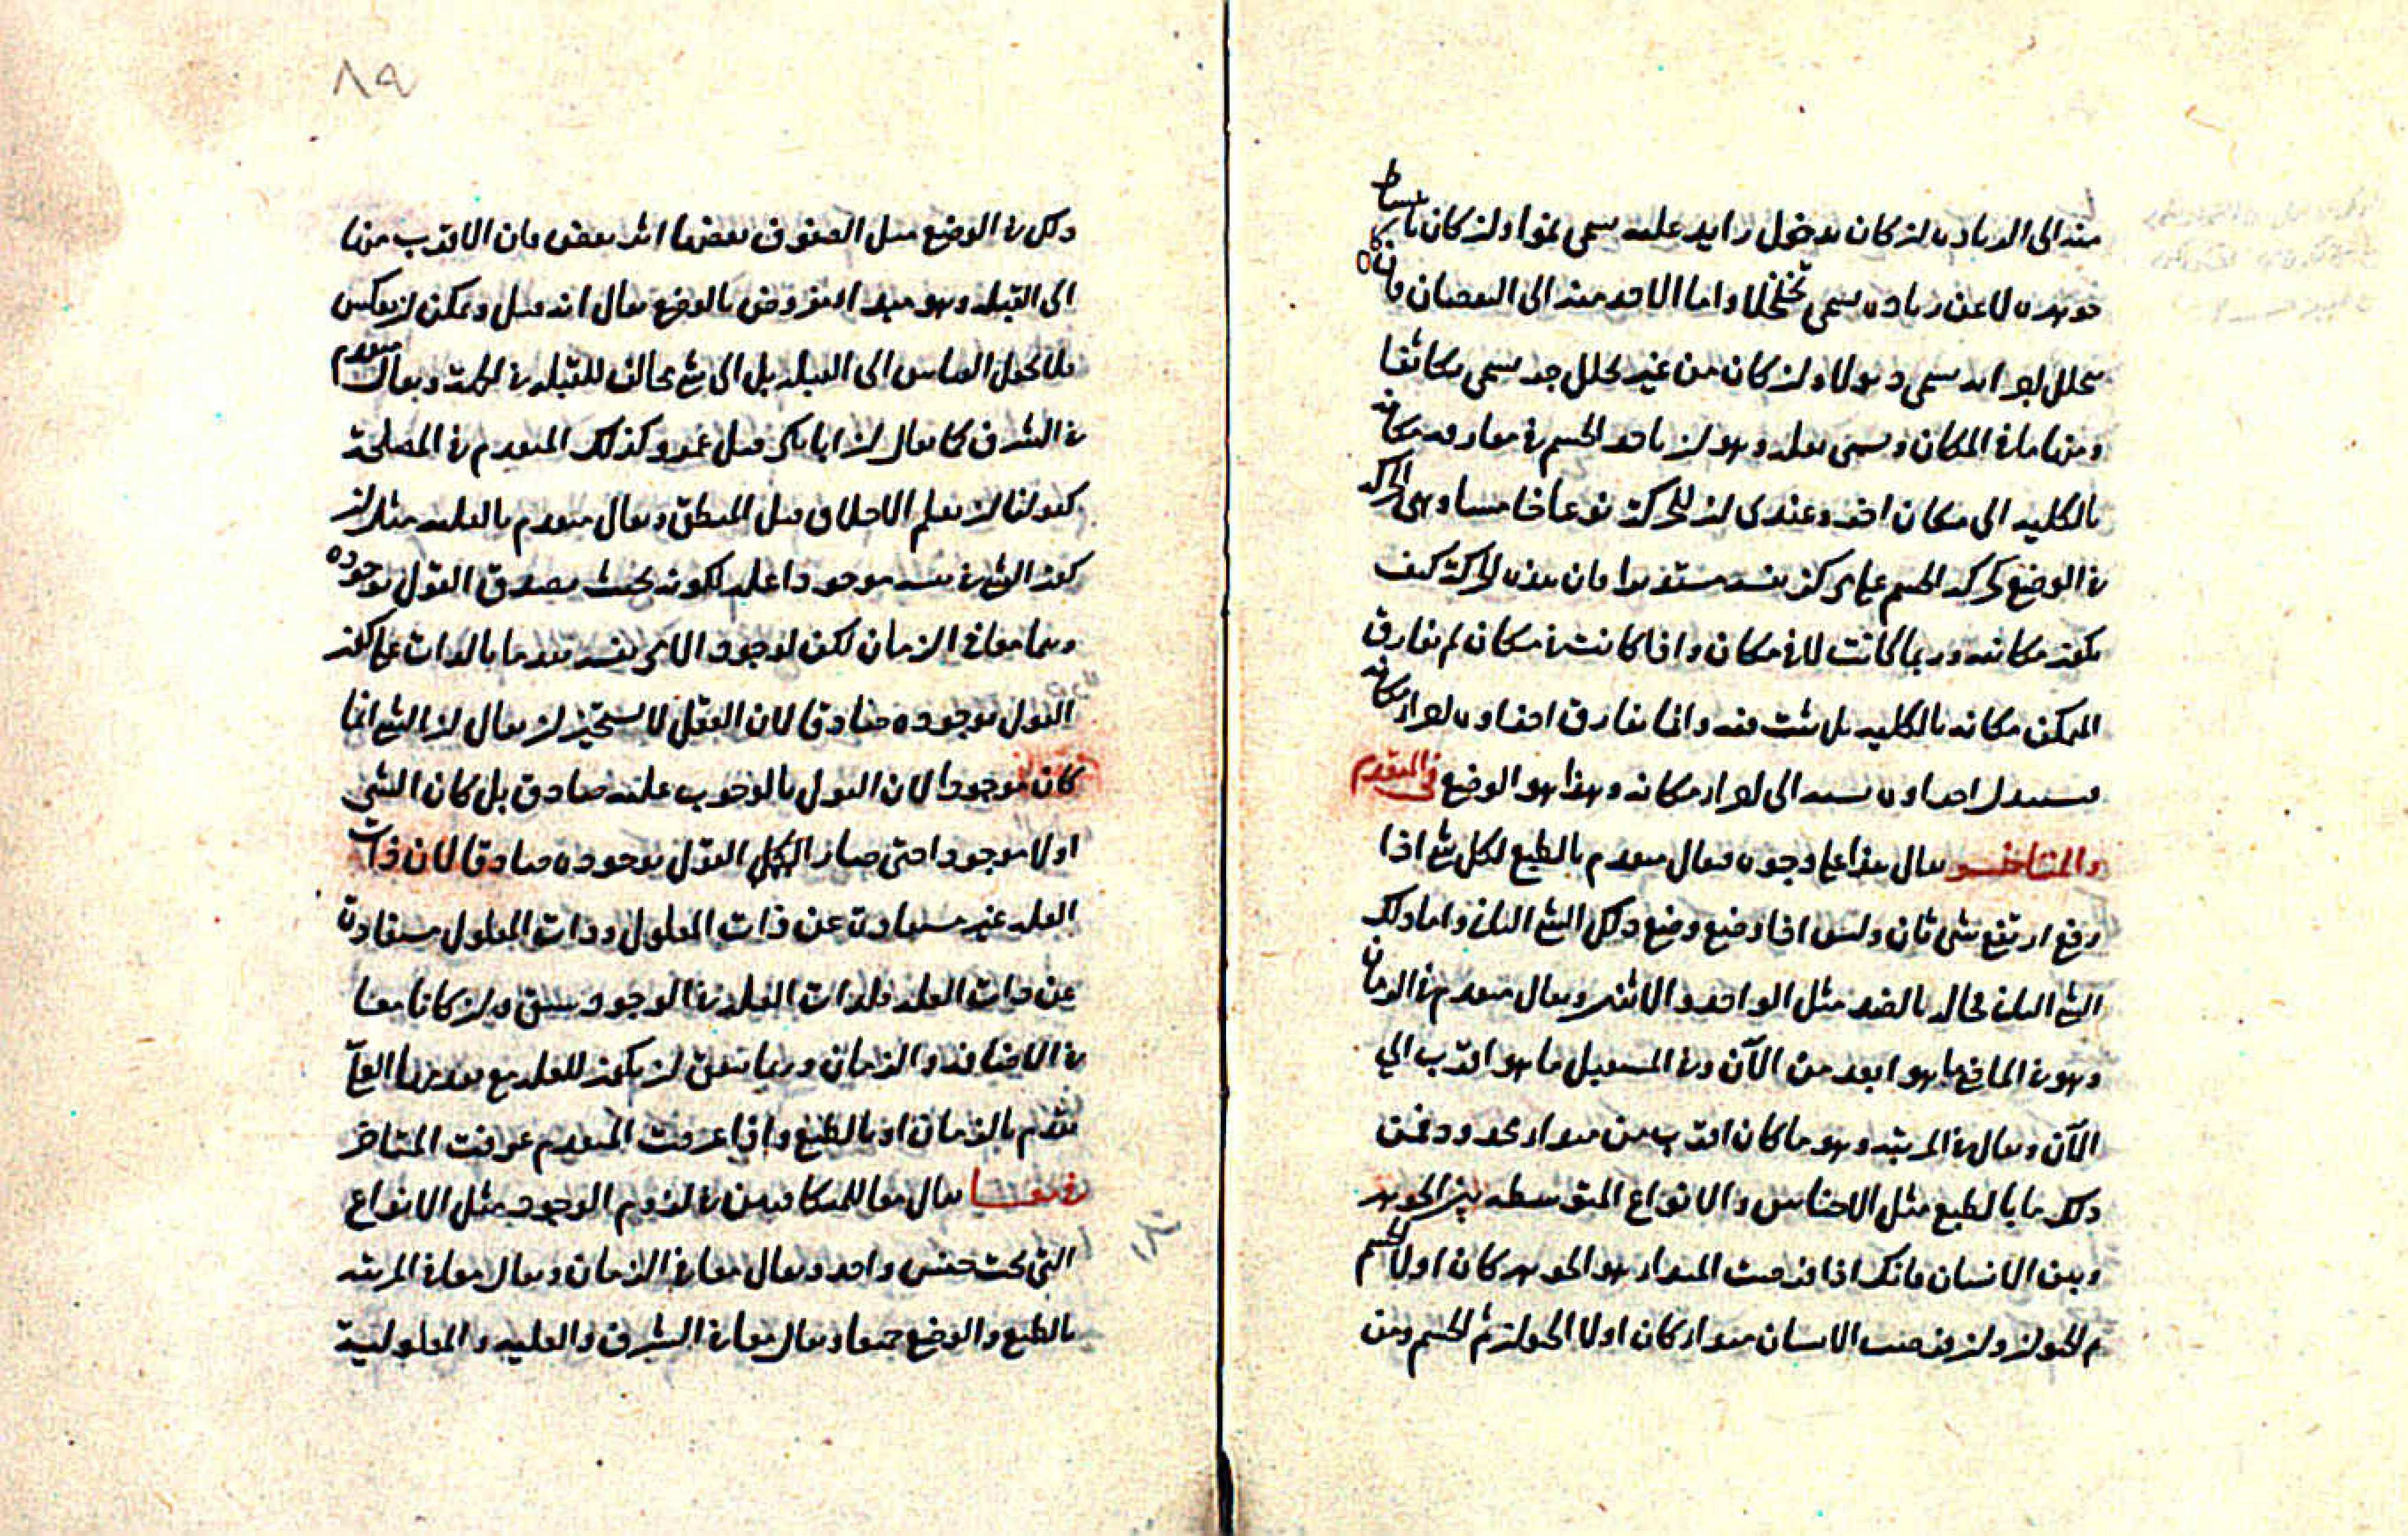 منه الى الزيادة ان كان بدخول زايد عليه سمى نموا وان كان بانبساط
جوهره لا عن زيادة سمى تخلخلا واما الاخذ منه الى النقصان فان كان
بتحلل اجزائه سمى ذبولا وان كان من غير تحلل جزء سمى تكاثفا
ومنها ما في المكان وسمى نقله وهو ان ياخذ الجسم في مفارقه مكانه
بالكليه الى مكان اخر وعندى ان للحركة نوعا خامسا وهى الحركه
في الوضع كحركه الجسم على مركز نفسه مستديرا فان هذه الحركة كيف
تكون مكانيه وربما كانت لا في مكان واذا كانت في مكان لم يفارق
المتمكن مكانه بالكليه بل يثبت فيه وانما يفارق اجزاوه اجزا مكانه
يستبدل اجزاوه نسبه الى اجزاء مكانه وهذا هو الوضع في المتقدم
والمتاخر يقال هذا على وجوه فيقال متقدم بالطبع لكل شئ اذا
رفع ارتفع شئ ثان وليس اذا وضع وضع ذلك الشئ الثانى واما ذلك
الشئ الثانى فحاله بالضد مثل الواحد والاثنين ويقال متقدم في الزمان
وهو في الماضى ما هو ابعد من الآن وفي المستقبل ما هو اقرب الي
الآن ويقال في المرتبه وهو ما كان اقرب من مبداء محدود فمن
ذلك ما بالطبع مثل الاجناس والانواع المتوسطه بين الجوهر
وبين الانسان فانك اذا فرضت المبداء هو الجوهر كان اولا الجسم
ثم الحيوان وان فرضت الانسان مبداء كان اولا الحيوان ثم الجسم ومن
٨٩
ذلك في الوضع مثل الصفوف بعضها اثر بعض فان الاقرب منها
الى القبله وهو مبداء مفروض بالوضع يقال انه قبل ويمكن ان يعكس
فلا يجعل القياس الى القبله بل الى شئ مخالف للقبله في الجهة ويقال متقدم
في الشرف كما يقال ان ابا بكر قبل عمر وكذلك المتقدم في المصلحة
كقولنا ان تعلم الاخلاق قبل المنطق ويقال متقدم بالعليه مثل ان
كون الشئ في نفسه موجودا علة لكونه بحيث يصدق القول بوجوده
وهما معا في الزمان لكن لوجود الامر نفسه تقدما بالذات على كون
القول بوجوده صادقا لان العقل لا يستجيز ان يقال ان الشئ انما
كان موجودا لان القول بالوجوب عليه صادق بل كان الشي
اولا موجودا حتى صار القول بوجوده صادقا لان ذات
العله غير مستفادة عن ذات المعلول وذات المعلول مستفادة
عن ذات العله فلذات العله في الوجود سبق وان كانا معا
في الاضافه والزمان وربما يتفق ان يكون للعله مع تقدمها العلى
تقدم بالزمان او بالطبع واذا عرفت المتقدم عرفت المتاخر
في معا يقال معا للمتكافيين في لزوم الوجود مثل الانواع
التى تحت جنس واحد ويقال معا في الزمان ويقال معا في المرتبه
بالطبع والوضع جميعا ويقال معا في الشرف والعليه والمعلولية